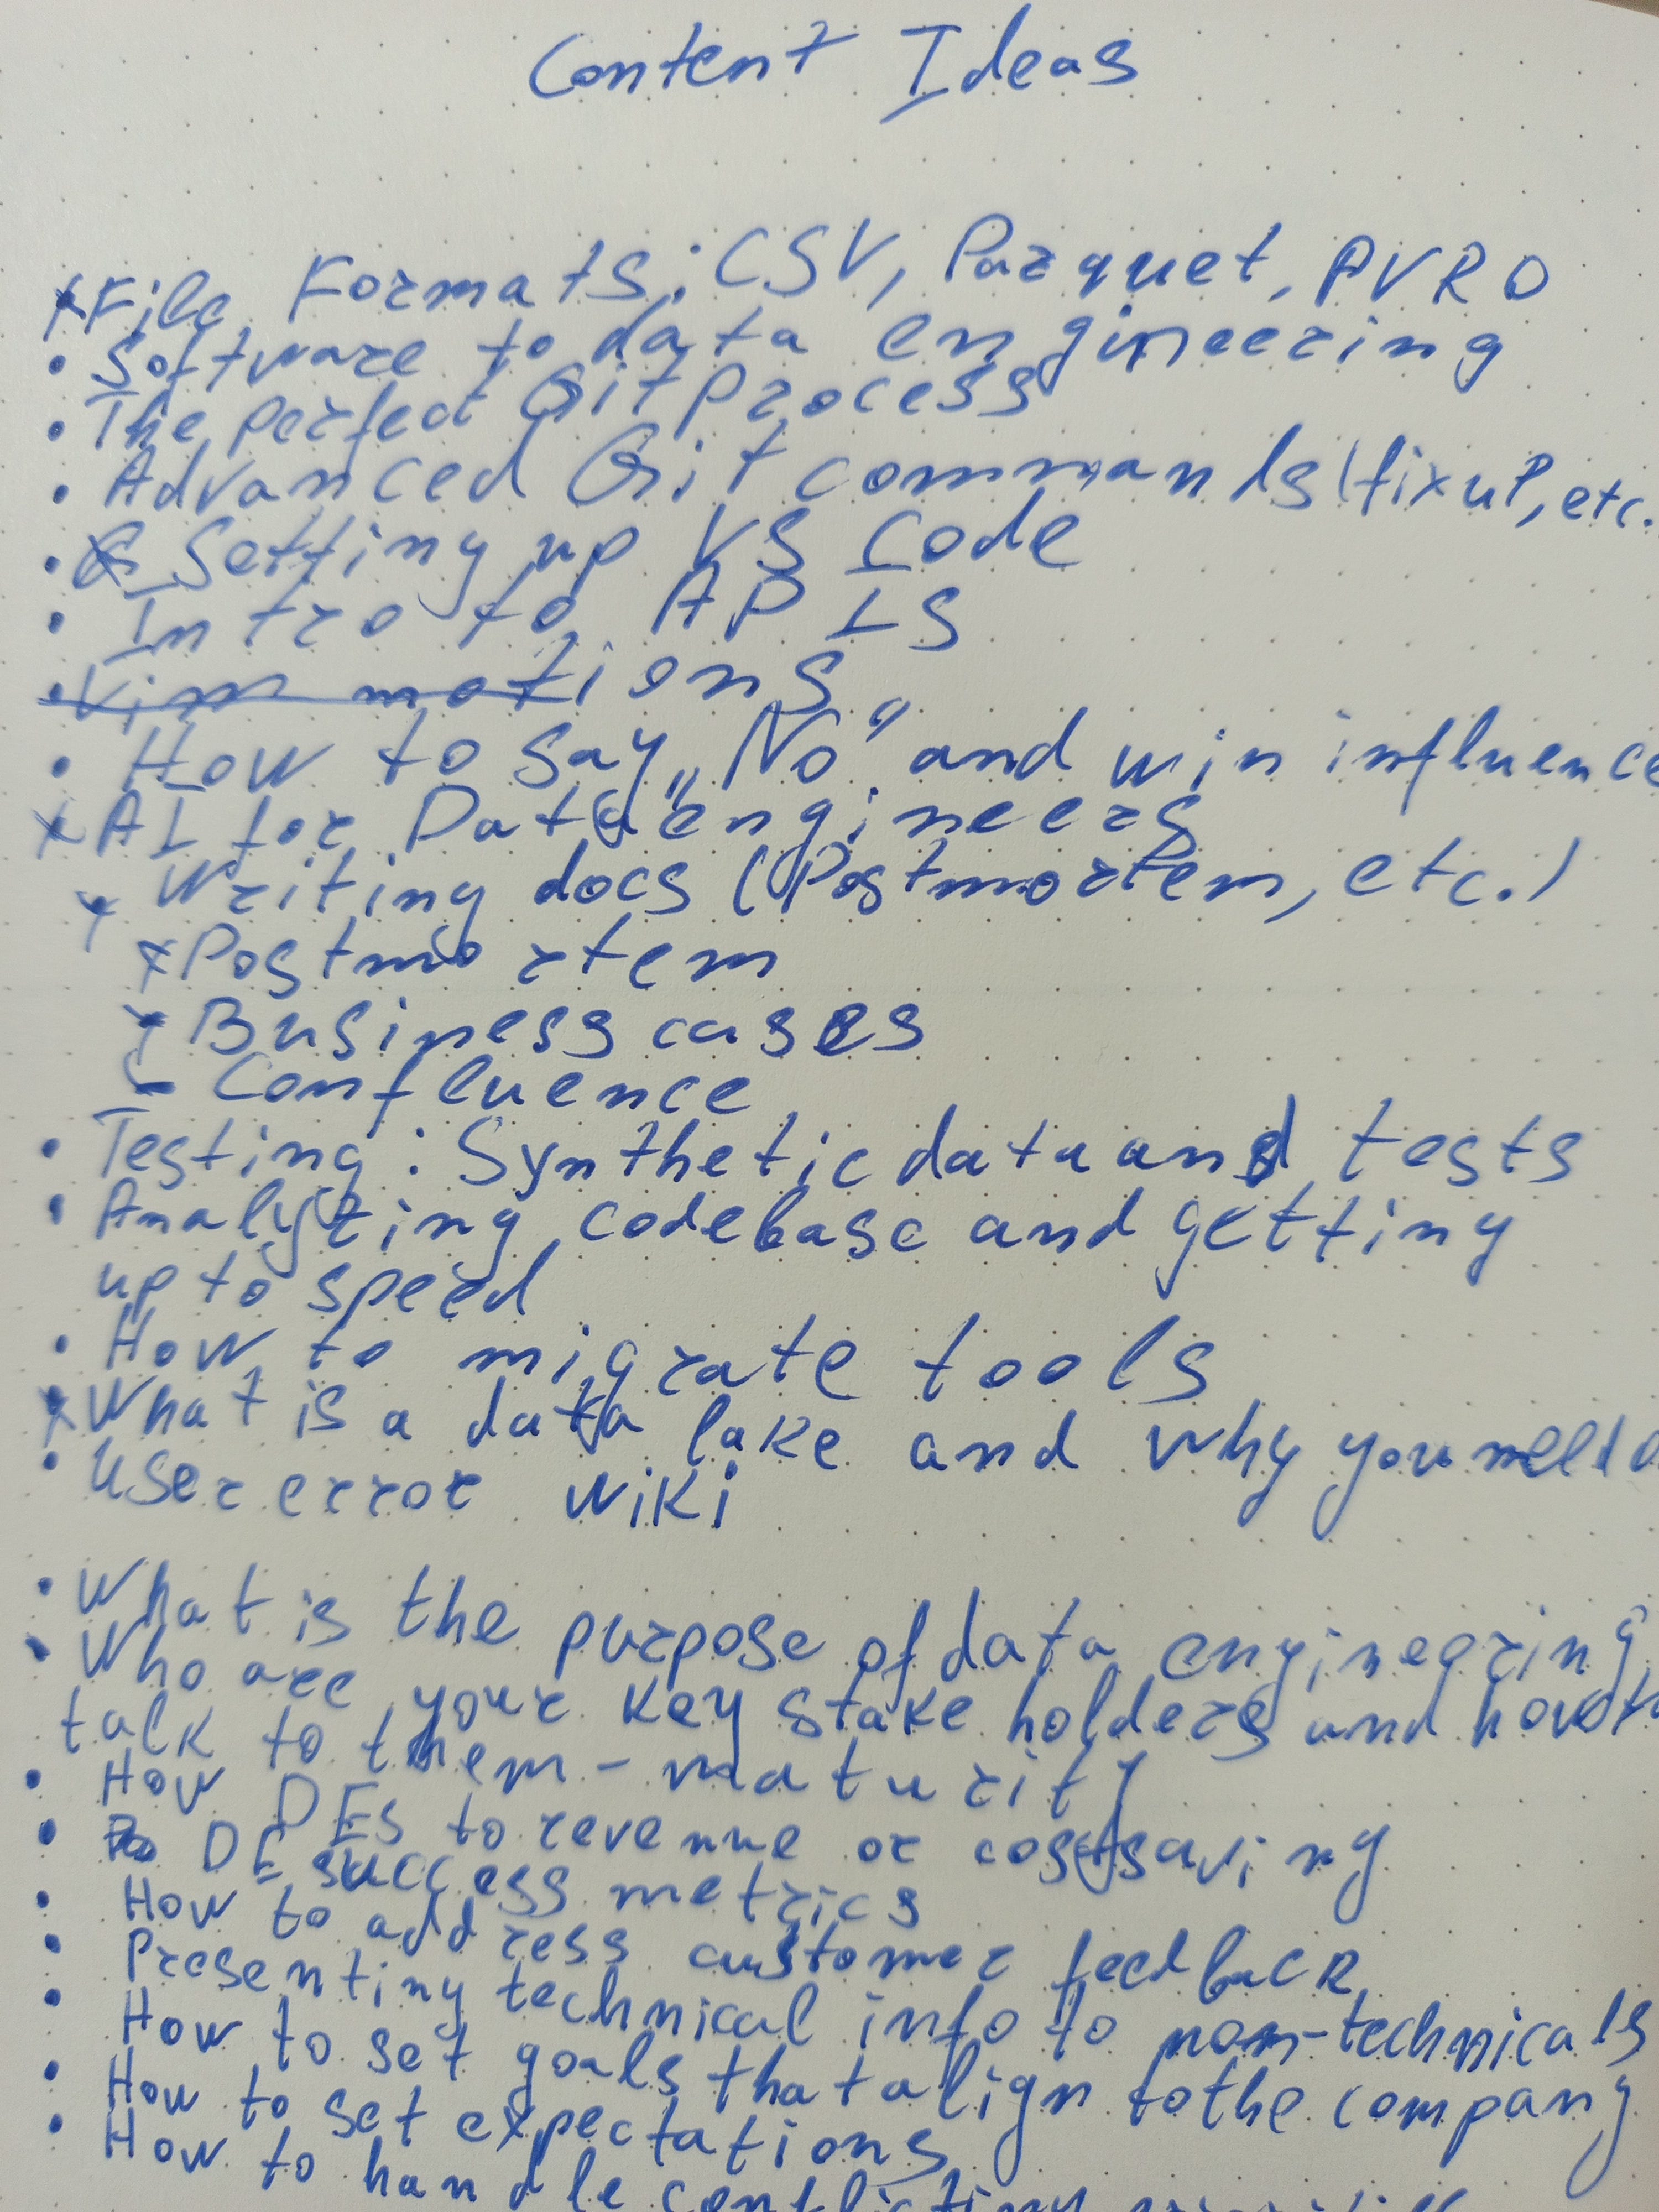 Content Ideas
x File Formats: CSV, Parquet, AVRO
• Software to data engineering
• The perfect Git process
• Advanced Git commands (fixup, etc.
• Setting up VS Code
• Intro to APIs
• Vim motions
• How to say „No" and win influence
x AI for Data engineers
x Writing docs (Postmortem, etc.)
x Postmortem
x Business cases
- Confluence
• Testing: Synthetic data and tests
• Analyzing codebase and getting
up to speed
• How to migrate tools
x What is a data lake and why you need
• User error wiki
• What is the purpose of data engineering
• Who are your key stake holders and how to
talk to them - maturity
• How DEs to revenue or cost saving
• DE success metrics
• How to address customer feedback
• Presenting technical info to non-technicals
• How to set goals that align to the company
• How to set expectations
• How to handle conflicting